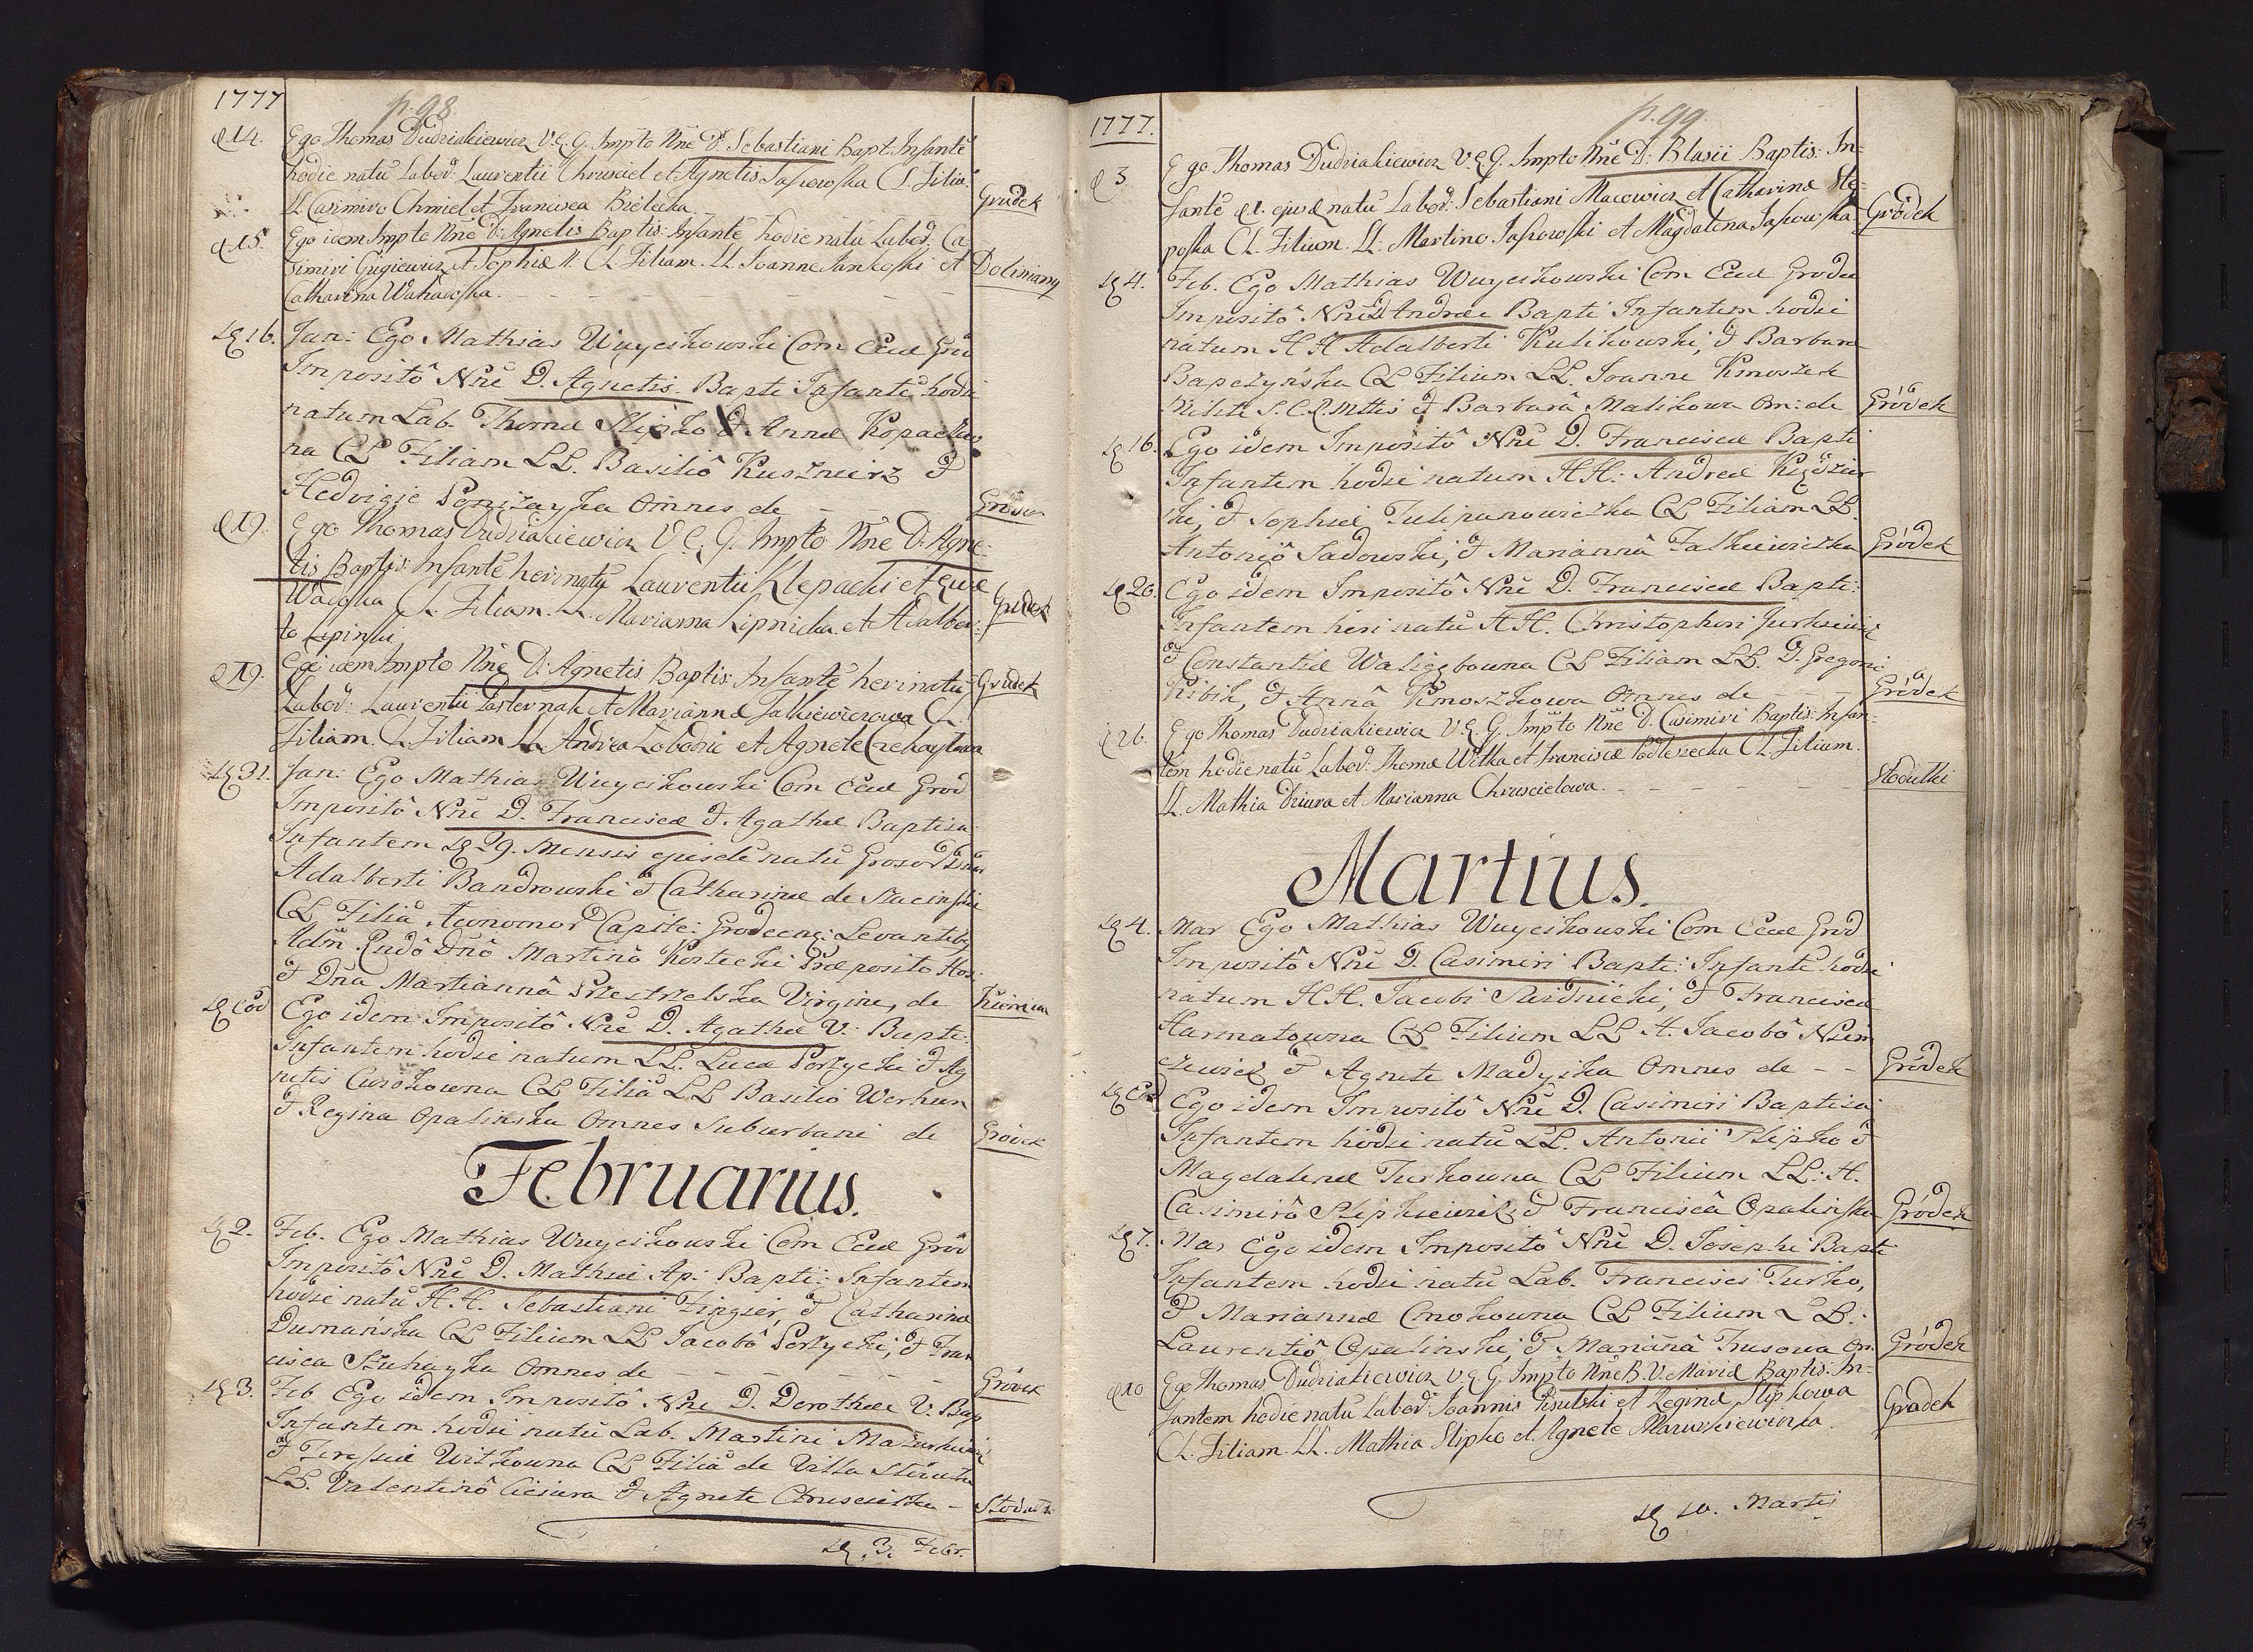 1777
p. 98.
d 14. Ego Thomas Dudziakiewicz V. C. G. Impto Nne D. Sebastiani Bapt. Infantē
hodie natū Labor: Laurentii Chrusciel et Agnetis Jaskowska CL Filiū
LL Casimiro Chmiel et Francisca Bielecka. Grudek
d 15. Ego idem Impto Nne D. Agnetis Baptis: Infantē hodie natū Labor: Ca-
simiri Gigiewicz et Sophiæ N. CL Filiam. LL. Joanne Jankoski et Doliniany
Catharina
16. Jan: Ego Mathias Wuycikowski Com Eccl Grod
Impositô Nnē D. Agnetis Bapti Infantē hodie
natum Lab. Thomæ Slipko & Annæ
na CL Filiam LL. Basiliô Kusznierz &
Hedvigie Omnes de Grodek
d 19. Ego Thomas Dudziakiewicz V. C. G. Impto Nne D. Agne-
tis Baptis: Infantē heri natū Laurentii Klepacki et Evæ
CL. Filiam. LL. Marianna Lipnicka et Adalber- Grudek
to Lipinski
d 19. Ego idem Impto Nne D. Agnetis Baptis Infantē heri natū Grudek
Labor: Laurentii Pasternak et Mariannæ Falkiewiczowa CL.
Filiam. CL Filiam LL Andrea Lobodzic et Agnete
31. Jan: Ego Mathias Wuycikowski Com Eccl Grod
Impositô Nnē D. Franciscæ & Agathæ Baptisa:
Infantem 29. Mensis ejusdē natū
Adalberti Bandrowski & Catharinæ de
CL Filiā Œconomor Capite: Grodecen: Levantibq
Adm Rndô Dnô Martinô Kostecki Præposito
& Dna Mariannâ Virgine, de
eod Ego idem Impositô Nnē D. Agathæ V. Bapti:
Infantem hodie natum LL. Lucæ Porzycki & Ag
netis CL Filiā LL Basilio Werhun
& Regina Opalinska Omnes Suburbani de Grodek
Februarius.
2. Feb. Ego Mathias Wuycikowski Com Eccl Grod
Impositô Nnē D. Mathiæ Ap: Bapti: Infantem
hodie natū H.H. Sebastiani & Catharinæ
Dumańska CL Filium LL Jacobô Porzycki, & Fran
cisca Omnes de Grodek
3. Feb Ego idem Impositô Nnē D. Dorotheæ V. Bap
Infantem hodie natū Lab. Martini
& Teressiæ Witkowna CL Filiā de Villa
LL. Valentinô & Agnete
3. Febr.
1777.
p. 99.
d 3 Ego Thomas Dudziakiewicz V. C. G. Impto Nne D: Blasii Baptis: In-
fantē natū Labor: Sebastiani Macowicz et Catharinæ Ste-
poska CL. Filium. LL: Martino Jaskowski et Magdalena Jaskowska Gródek
4. Feb. Ego Mathias Wuycikowski Com Eccl Grodec
Impositô Nnē D Andreæ Bapti Infantem hodie
natum H H Adalberti Kulikowski, & Barbara
CL Filium LL. Joanne Kmoszek
Milite & Barbarâ Malikowa Om: de Gródek
16. Ego idem Impositô Nnē D. Franciscæ Bapti
Infantem hodie natum H H: Andreæ Kędzier
ski, & Sophiæ Tulipanowiczka CL Filiam LL.
Antoniô Sadowski, & Mariannâ Falkiewiczka Gródek
20. Ego idem Impositô Nnē D. Franciscæ Bapti:
Infantem heri natū H H. Christophori Jurkiewicz
& Constantiæ CL Filiam LL. D. Gregorio
Kibik, & Annâ Kmoszkowa Omnes de Gródek
d 26. Ego Thomas Dudziakiewicz V. C. G. Impto Nne D. Casimiri Baptis: Infan-
tem hodie natū Labor: Thomæ Witka et Franciscæ Podleszecka CL Filium.
LL. Mathia Dziura et Marianna Chruscielowa. Stodulki
Martius.
4. Mar Ego Mathias Wuycikowski Com Eccl Grod
Impositô Nnē D. Casimiri Bapti: Infantē hodie
natum H.H. Jacobi & Francisca
Harmatowna CL Filium LL H. Jacobô
& Agnete Madyska Omnes de Gródek
Eod Ego idem Impositô Nnē D. Casimiri Baptisa
Infantem hodie natū LL. Antonii Slipko &
Magdalenæ Turkowna CL Filium LL: H.
Casimirô Slipkiewicz & Franciscâ Opalinska Gródek
7. Mar Ego idem Impositô Nnē D. Josephi Bapti
Infantem hodie natū Lab. Francisci Turko,
& Mariannæ CL Filium LL:
Laurentiô Opalinski, & Mariānâ Trusowa Om: Gródek
d 10 Ego Thomas Dudziakiewicz V. C. G. Impto Nne B. V. Mariæ Baptis: In-
fantem hodie natū Labor: Joannis Pisulski et Reginæ Slipkowa Gradek
CL. Filiam. LL. Mathia Slipko et Agnete
10. Martij